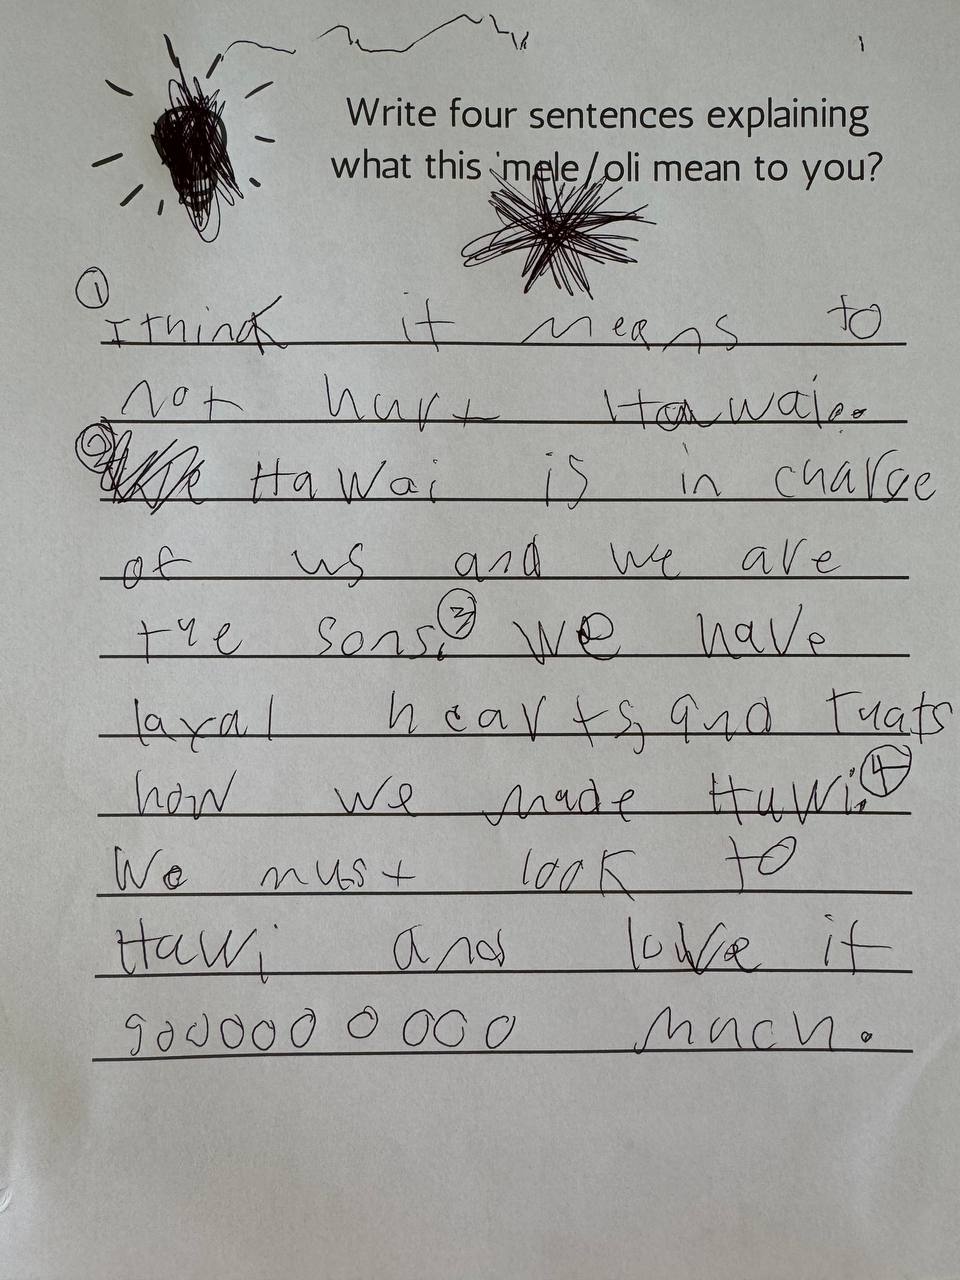 Write four sentences explaining
what this 'mele/oli mean to you?
① I think it means to
not hurt Hawai.
② Hawai is in charge
of us and we are
the sons. ③ We have
layal hearts, and thats
how we made Hawi. ④
We must look to
Hawi and love it
sooooo o ooo much.